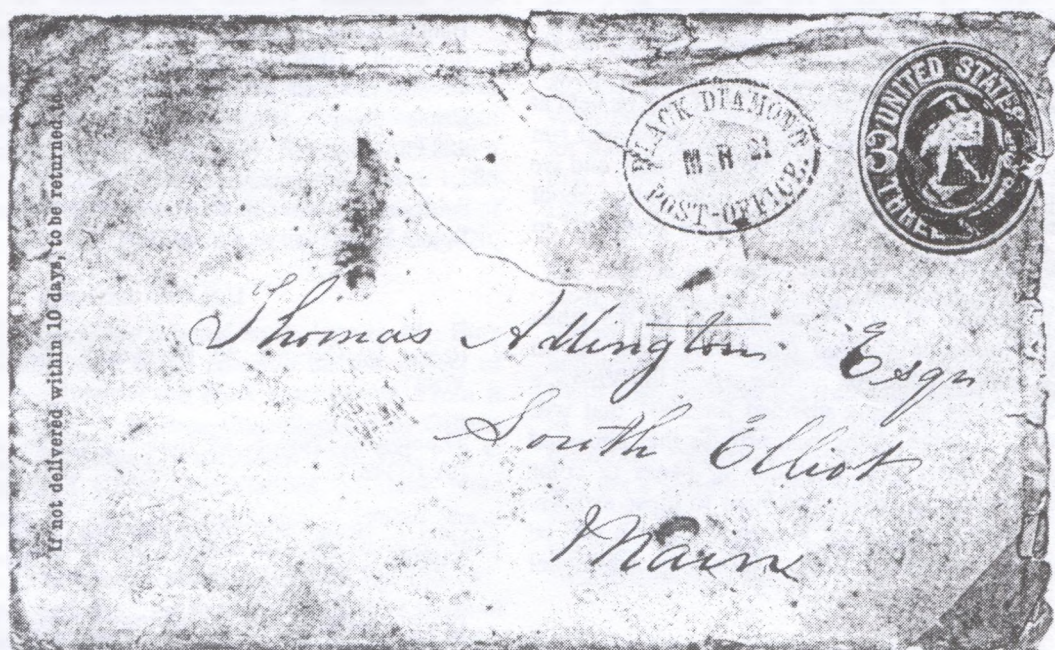 If not delivered within 10 days, to be returned to
BLACK DIAMOND
M R 21
POST-OFFICE.
UNITED STATES
3 3
THREE
Thomas Adlington Esqr
South Elliot
Maine